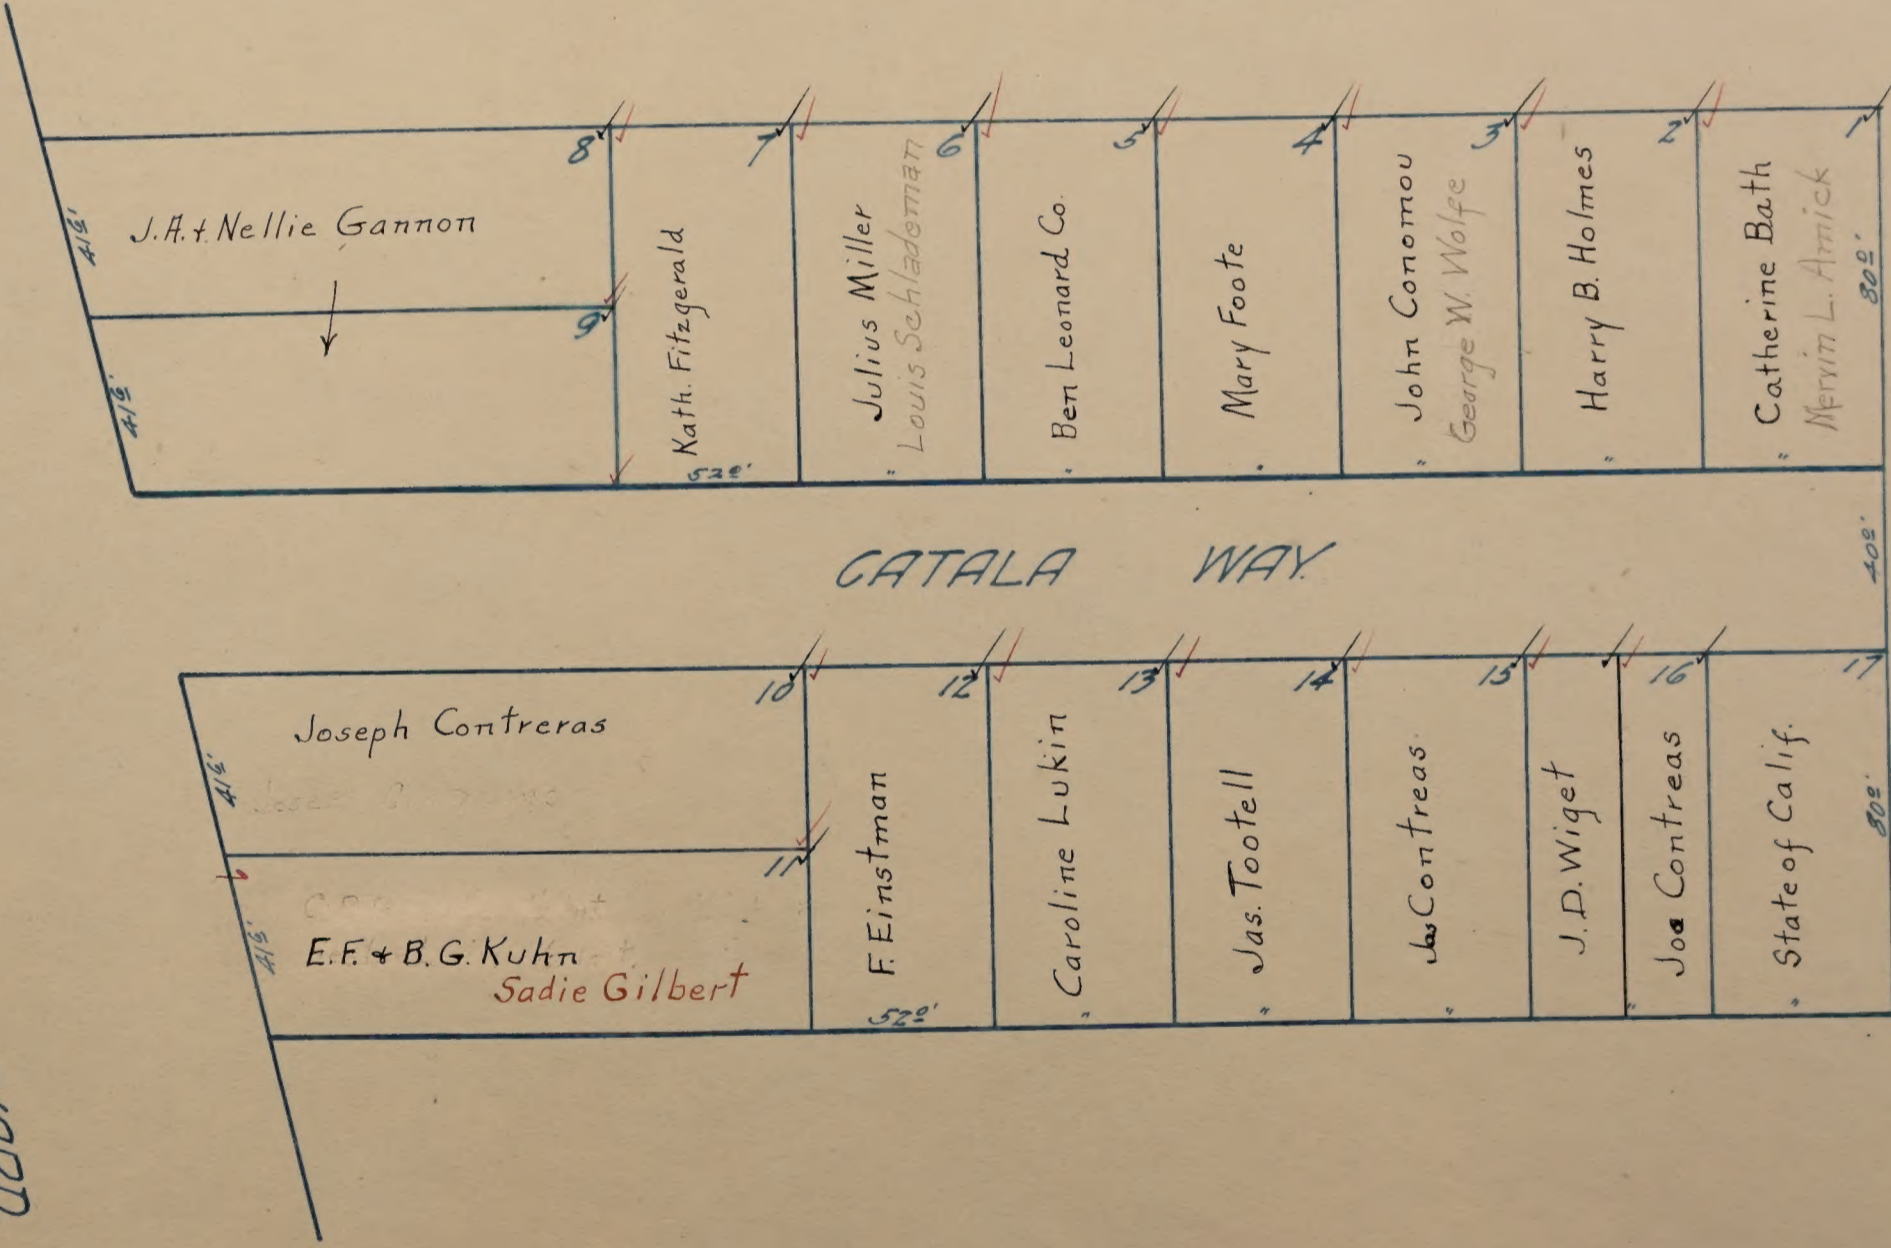 8
7
6
5
4
3
2
1
41⁶'
J.A. & Nellie Gannon
9
41⁶'
Kath. Fitzgerald
52⁰'
Julius Miller
Louis Schlademan
"
Ben Leonard Co.
"
Mary Foote
"
John Conomou
George W. Wolfe
"
Harry B. Holmes
"
Catherine Bath
Mervin L. Amick
"
80⁰'
CATALA WAY.
40⁰'
10
12
13
14
15
16
17
41⁶'
Joseph Contreras
11
41⁶'
E.F. & B.G. Kuhn
Sadie Gilbert
F. Einstman
52⁰'
Caroline Lukin
"
Jas. Tootell
"
Jas Contreas.
"
J.D. Wiget
"
Joe Contreas
State of Calif.
"
80⁰'